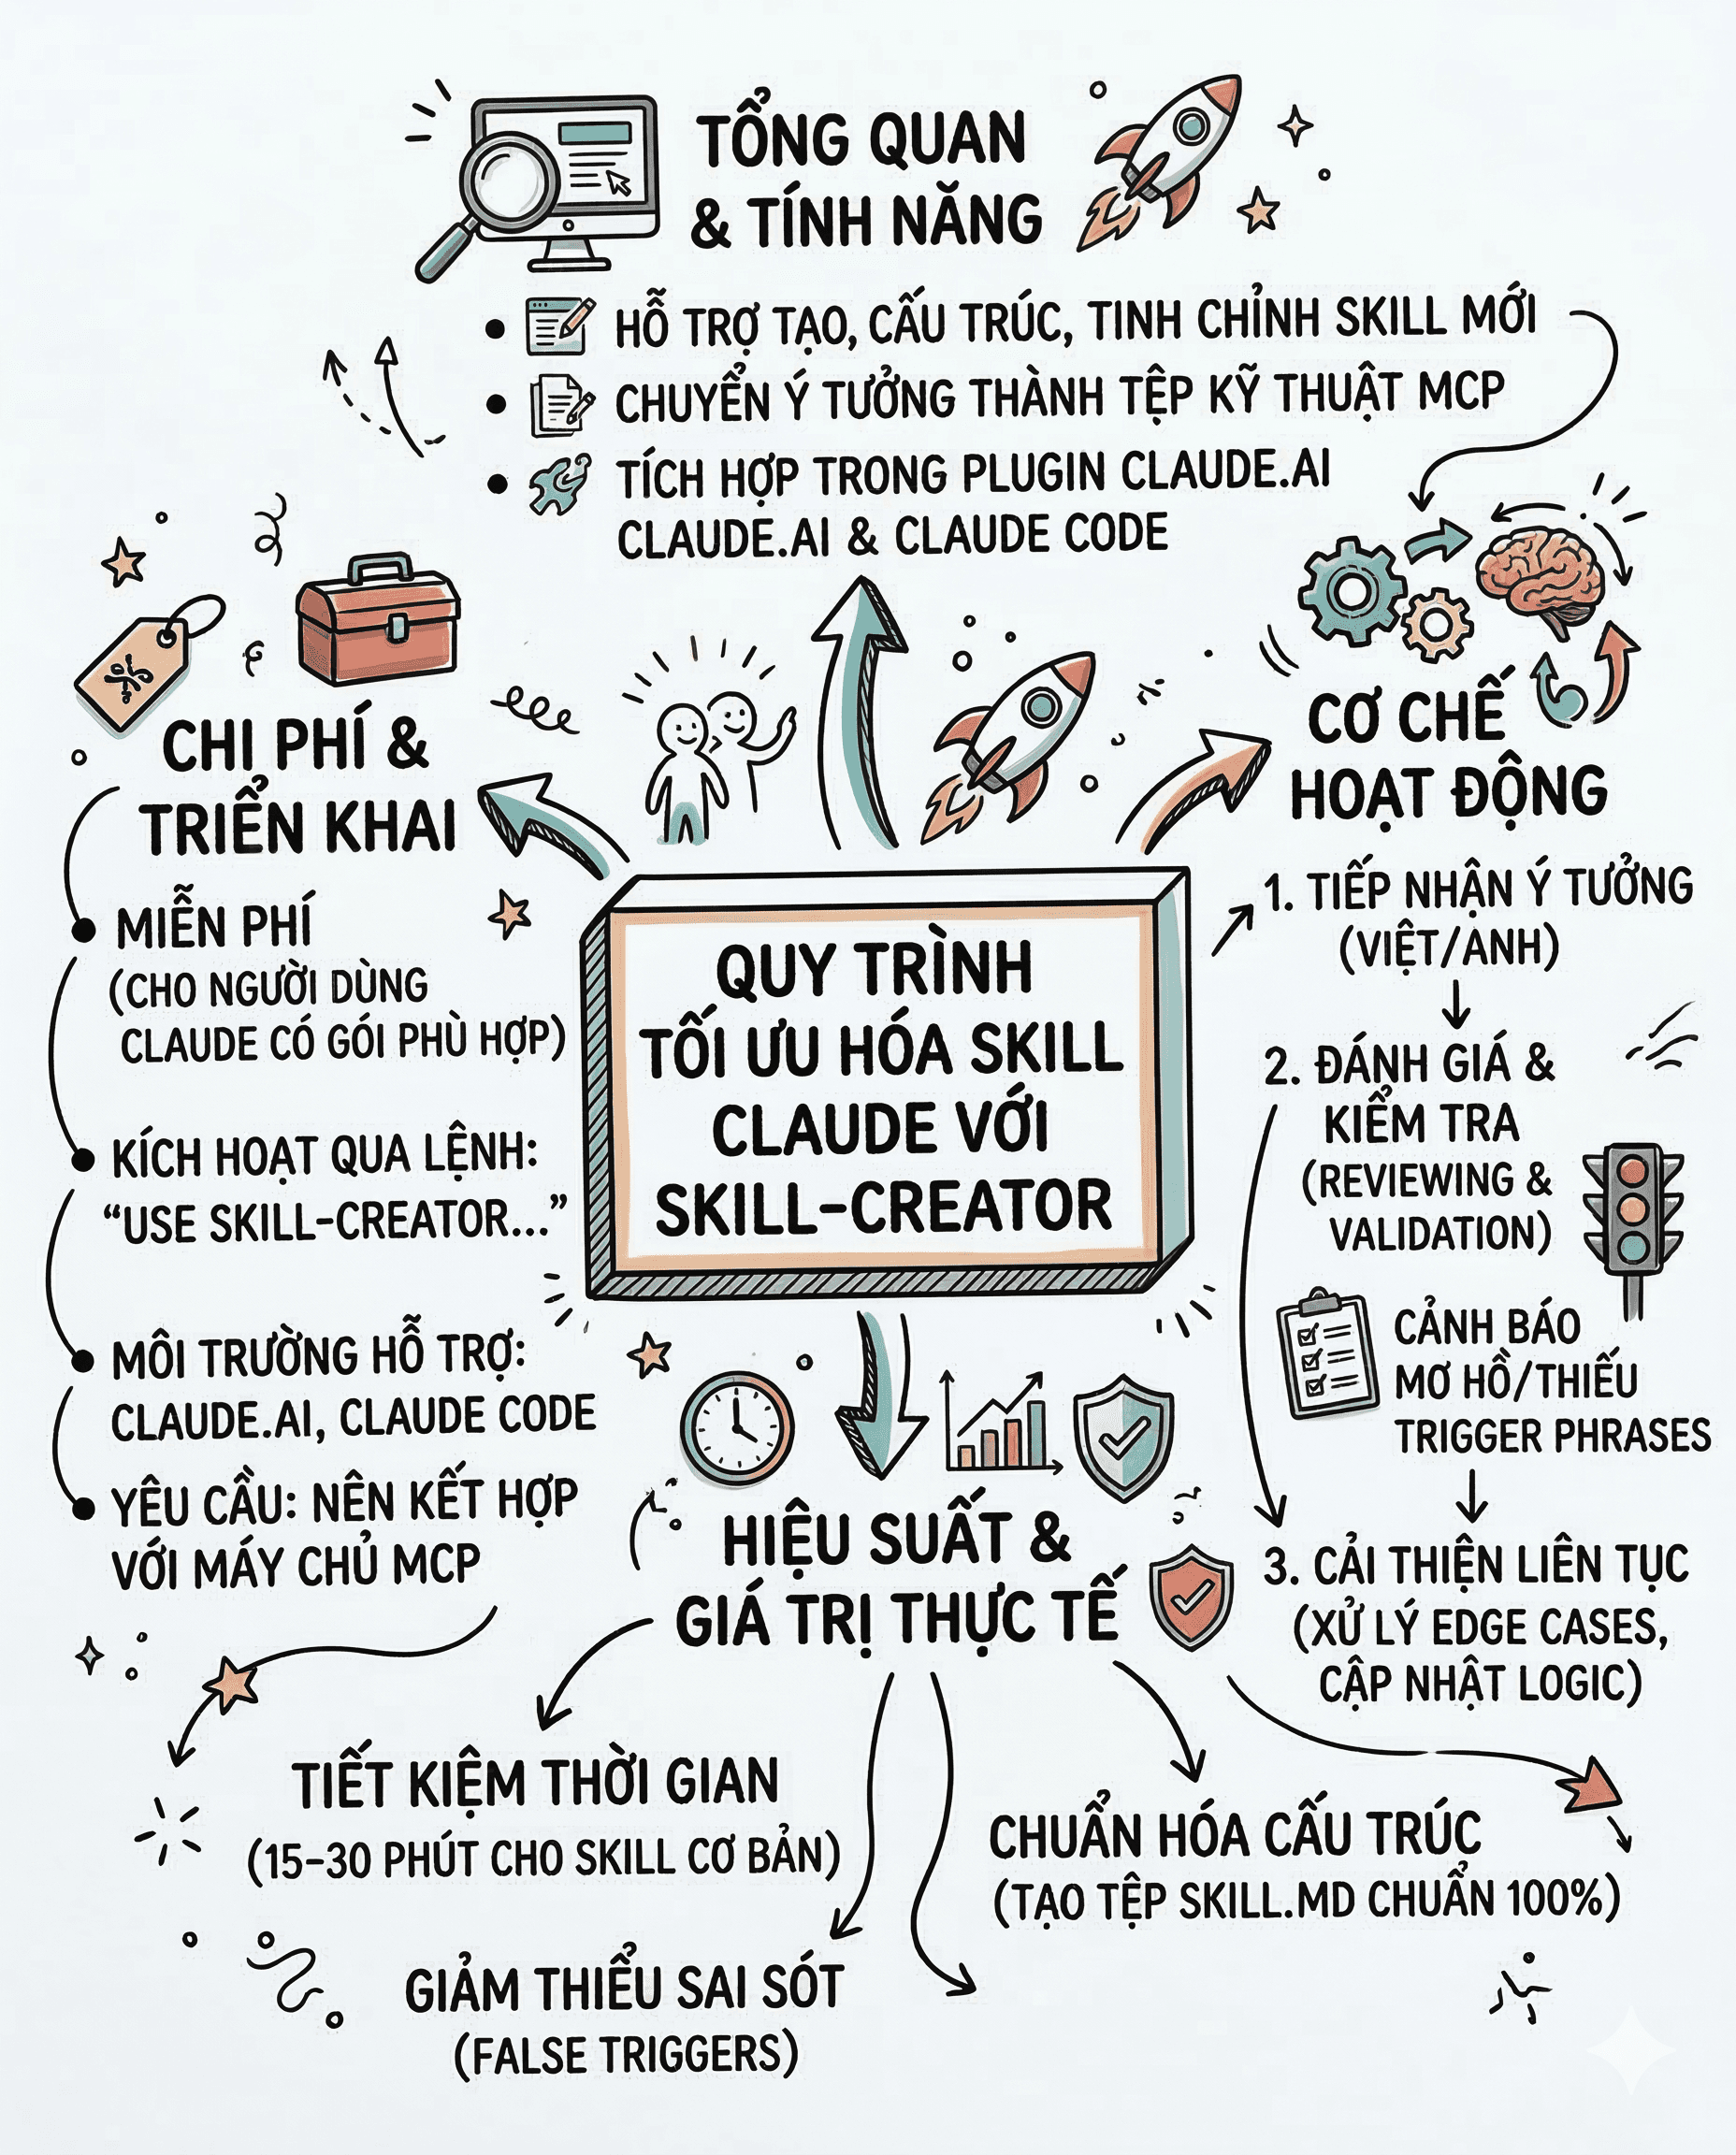 TỔNG QUAN
& TÍNH NĂNG
HỖ TRỢ TẠO, CẤU TRÚC, TINH CHỈNH SKILL MỚI
CHUYỂN Ý TƯỞNG THÀNH TỆP KỸ THUẬT MCP
TÍCH HỢP TRONG PLUGIN CLAUDE.AI
CLAUDE.AI & CLAUDE CODE
CHI PHÍ &
TRIỂN KHAI
MIỄN PHÍ
(CHO NGƯỜI DÙNG
CLAUDE CÓ GÓI PHÙ HỢP)
KÍCH HOẠT QUA LỆNH:
“USE SKILL-CREATOR...”
MÔI TRƯỜNG HỖ TRỢ:
CLAUDE.AI, CLAUDE CODE
YÊU CẦU: NÊN KẾT HỢP
VỚI MÁY CHỦ MCP
QUY TRÌNH
TỐI ƯU HÓA SKILL
CLAUDE VỚI
SKILL-CREATOR
CƠ CHẾ
HOẠT ĐỘNG
1. TIẾP NHẬN Ý TƯỞNG
(VIỆT/ANH)
2. ĐÁNH GIÁ &
KIỂM TRA
(REVIEWING &
VALIDATION)
CẢNH BÁO
MƠ HỒ/THIẾU
TRIGGER PHRASES
3. CẢI THIỆN LIÊN TỤC
(XỬ LÝ EDGE CASES,
CẬP NHẬT LOGIC)
HIỆU SUẤT &
GIÁ TRỊ THỰC TẾ
TIẾT KIỆM THỜI GIAN
(15-30 PHÚT CHO SKILL CƠ BẢN)
GIẢM THIỂU SAI SÓT
(FALSE TRIGGERS)
CHUẨN HÓA CẤU TRÚC
(TẠO TỆP SKILL.MD CHUẨN 100%)